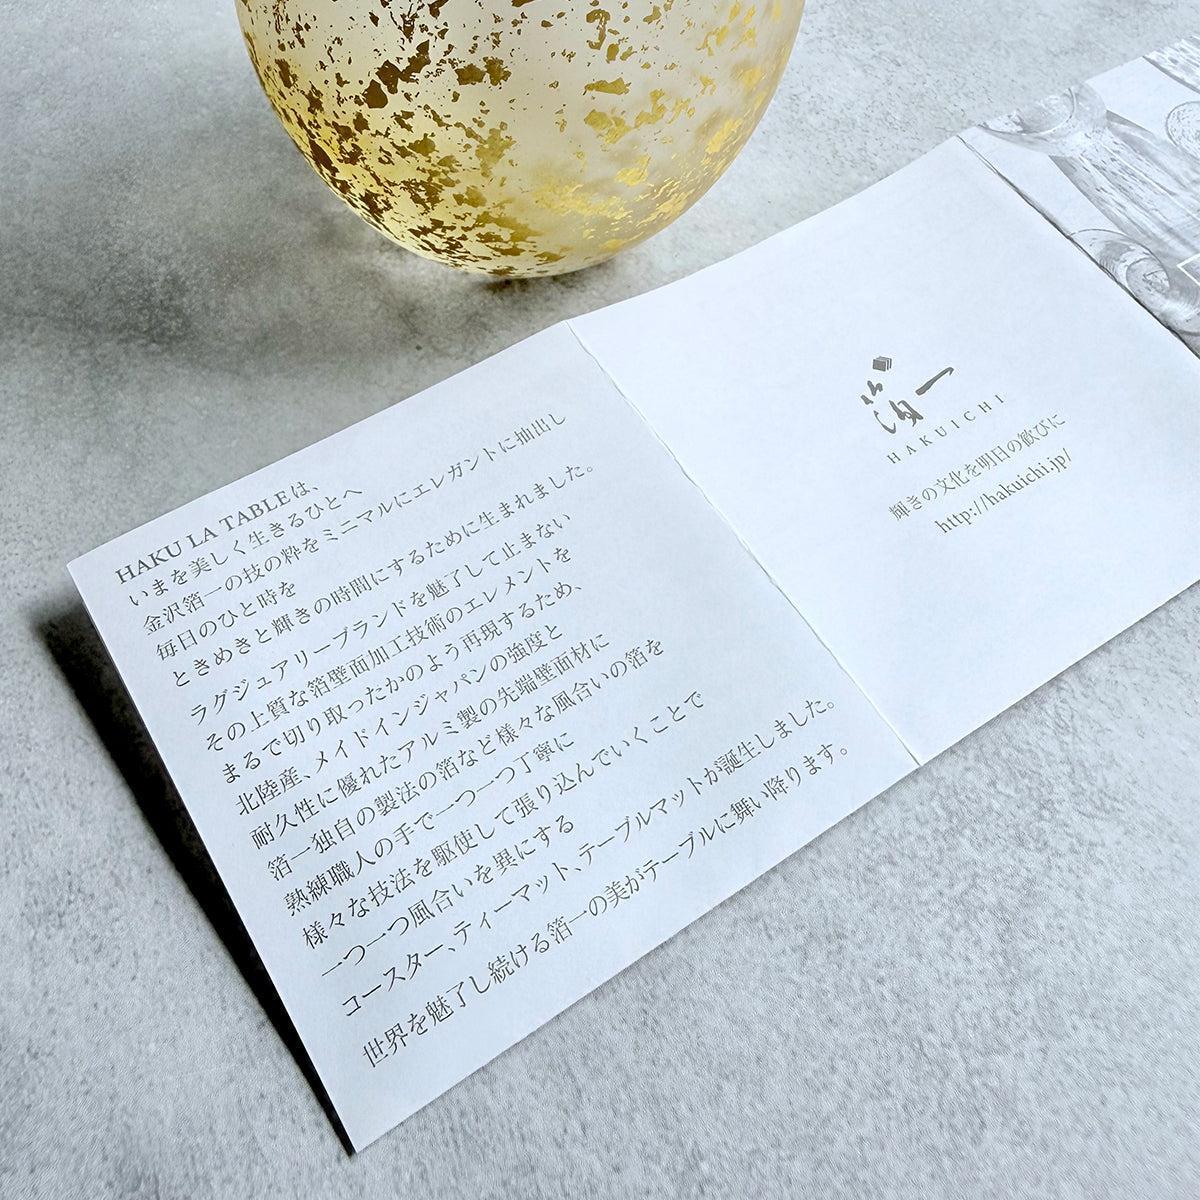 HAKU LA TABLEは、
いまを美しく生きるひとへ
金沢箔一の技の粋をミニマルにエレガントに抽出し
毎日のひと時を
ときめきと輝きの時間にするために生まれました。
ラグジュアリーブランドを魅了して止まない
その上質な箔壁面加工技術のエレメントを
まるで切り取ったかのよう再現するため、
北陸産、メイドインジャパンの強度と
耐久性に優れたアルミ製の先端壁面材に
箔一独自の製法の箔など様々な風合いの箔を
熟練職人の手で一つ一つ丁寧に
様々な技法を駆使して張り込んでいくことで
一つ一つ風合いを異にする
コースター、ティーマット、テーブルマットが誕生しました。
世界を魅了し続ける箔一の美がテーブルに舞い降ります。
箔一
HAKUICHI
輝きの文化を明日の歓びに
http://hakuichi.jp/